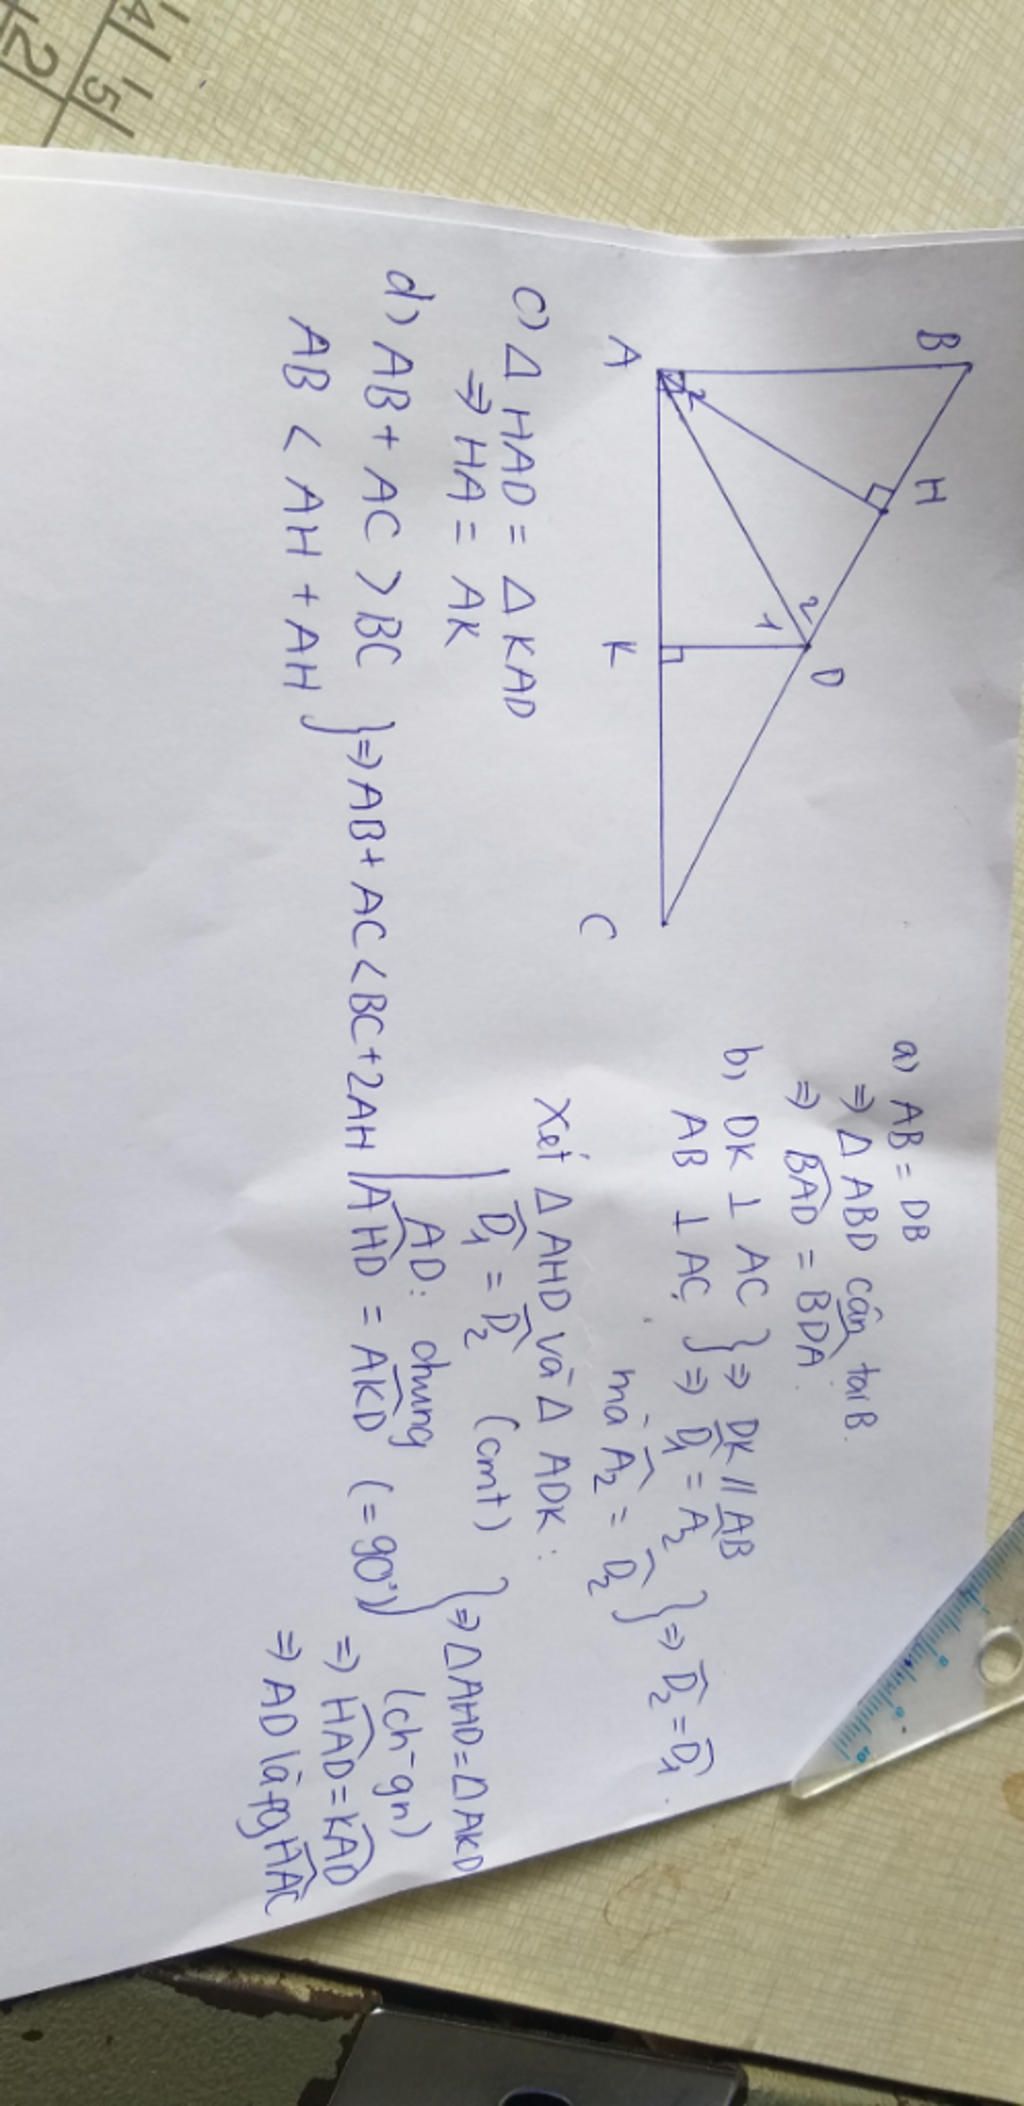 B
H
D
2
1
2
A
K
C
a) AB = DB
⇒ Δ ABD cân tại B.
⇒ BAD̂ = BDÂ
b) DK ⊥ AC
AB ⊥ AC } ⇒ DK // AB
⇒ D̂₁ = Â₂
mà Â₂ = D̂₂ } ⇒ D̂₂ = D̂₁
Xét Δ AHD và Δ ADK :
D̂₁ = D̂₂ (cmt)
AD: chung
AHD̂ = AKD̂ (= 90°) } ⇒ ΔAHD = ΔAKD
(ch-gn)
⇒ HAD̂ = KAD̂
⇒ AD là pg HAĈ
c) Δ HAD = Δ KAD
⇒ HA = AK
d) AB + AC > BC
AB < AH + AH } ⇒ AB + AC < BC + 2AH
4
5
2